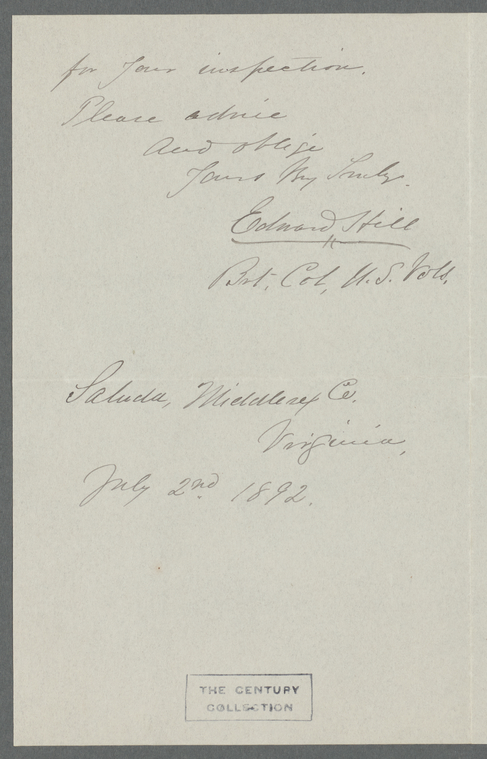 for your inspection.
Please advice
and oblige
Yours Very Truly.
Edward Hill
Bvt. Col, U.S. Vols,
Saluda, Middlesex Co.
Virginia,
July 2nd 1892.
THE CENTURY
COLLECTION